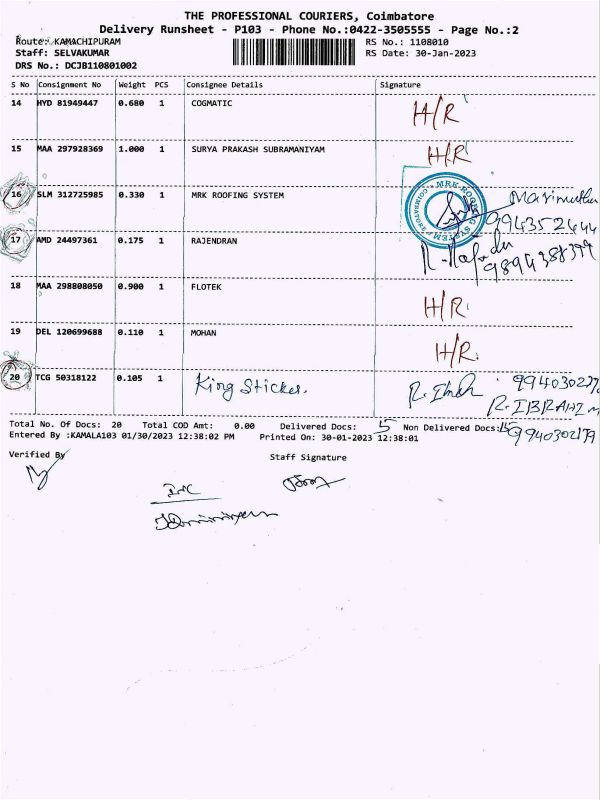 THE PROFESSIONAL COURIERS, Coimbatore
Delivery Runsheet - P103 - Phone No.:0422-3505555 - Page No.:2
Route: KAMACHIPURAM RS No.: 1108010
Staff: SELVAKUMAR RS Date: 30-Jan-2023
DRS No.: DCJB110801002
S No Consignment No Weight PCS Consignee Details Signature
14 HYD 81949447 0.680 1 COGMATIC H/R
15 MAA 297928369 1.000 1 SURYA PRAKASH SUBRAMANIYAM H/R
16 SLM 312725985 0.330 1 MRK ROOFING SYSTEM Marimuthu
17 AMD 24497361 0.175 1 RAJENDRAN
18 MAA 298808050 0.900 1 FLOTEK H/R
19 DEL 120699688 0.110 1 MOHAN H/R
20 TCG 50318122 0.105 1 King Sticker.
R. IBRAHIM
Total No. Of Docs: 20 Total COD Amt: 0.00 Delivered Docs: 5 Non Delivered Docs: 15
9940302179
Entered By :KAMALA103 01/30/2023 12:38:02 PM Printed On: 30-01-2023 12:38:01
Verified By Staff Signature